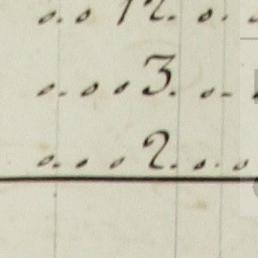 .. 12. ..
... 3. ..
... 2. ...